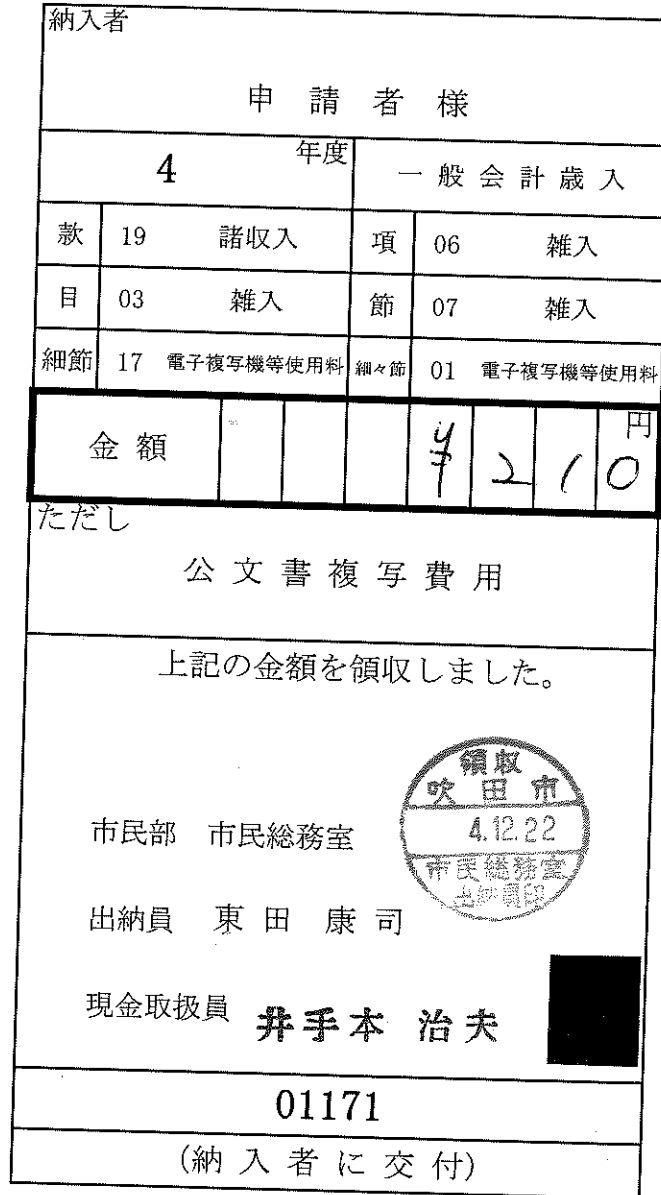 納入者
申請者様
4 年度 一般会計歳入
款 19 諸収入 項 06 雑入
目 03 雑入 節 07 雑入
細節 17 電子複写機等使用料 細々節 01 電子複写機等使用料
金額 ¥210 円
ただし
公文書複写費用
上記の金額を領収しました。
領収
吹田市
4.12.22
市民総務室
出納員印
市民部 市民総務室
出納員 東田 康司
現金取扱員 井手本 治夫
01171
(納入者に交付)